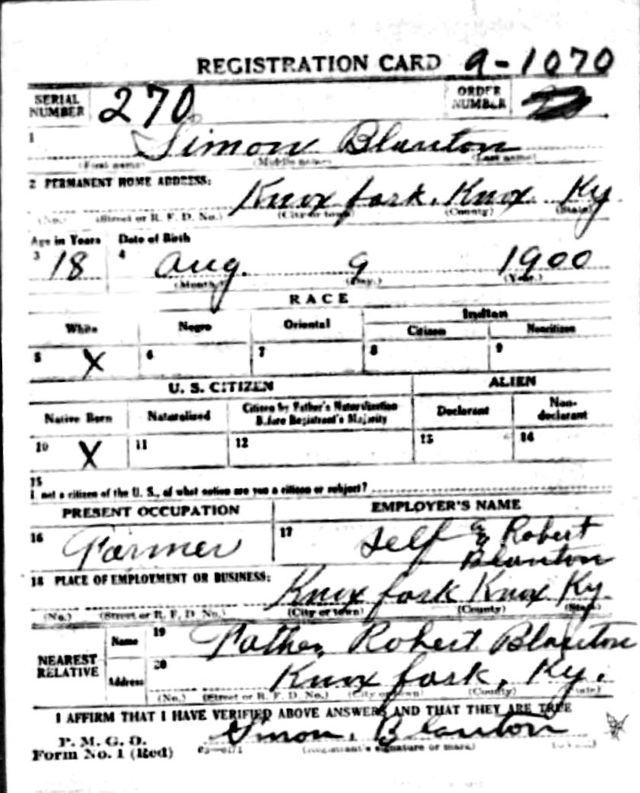 REGISTRATION CARD 9-1070
SERIAL NUMBER 270 ORDER NUMBER
1 Simon Blanton
(First name) (Middle name) (Last name)
2 PERMANENT HOME ADDRESS: Knox fork, Knox Ky
(No.) (Street or R. F. D. No.) (City or town) (County) (State)
Age in Years Date of Birth
3 18 4 Aug. 9 1900
(Month.) (Day.) (Year.)
RACE
White Negro Oriental Indian
Citizen Noncitizen
5 X 6 7 8 9
U. S. CITIZEN ALIEN
Native Born Naturalized Citizen by Father's Naturalization Before Registrant's Majority Declarant Non-declarant
10 X 11 12 13 14
15
If not a citizen of the U. S., of what nation are you a citizen or subject?
PRESENT OCCUPATION EMPLOYER'S NAME
16 Farmer 17 Self & Robert
Blanton
18 PLACE OF EMPLOYMENT OR BUSINESS: Knox fork Knox Ky.
(No.) (Street or R. F. D. No.) (City or town) (County) (State)
NEAREST RELATIVE Name 19 Father, Robert Blanton
Address 20 Knox fork, Ky.
(No.) (Street or R. F. D. No.) (City or town) (County) (State)
I AFFIRM THAT I HAVE VERIFIED ABOVE ANSWERS AND THAT THEY ARE TRUE
P. M. G. O.
Form No. 1 (Red) Simon, Blanton
(Registrant's signature or mark)